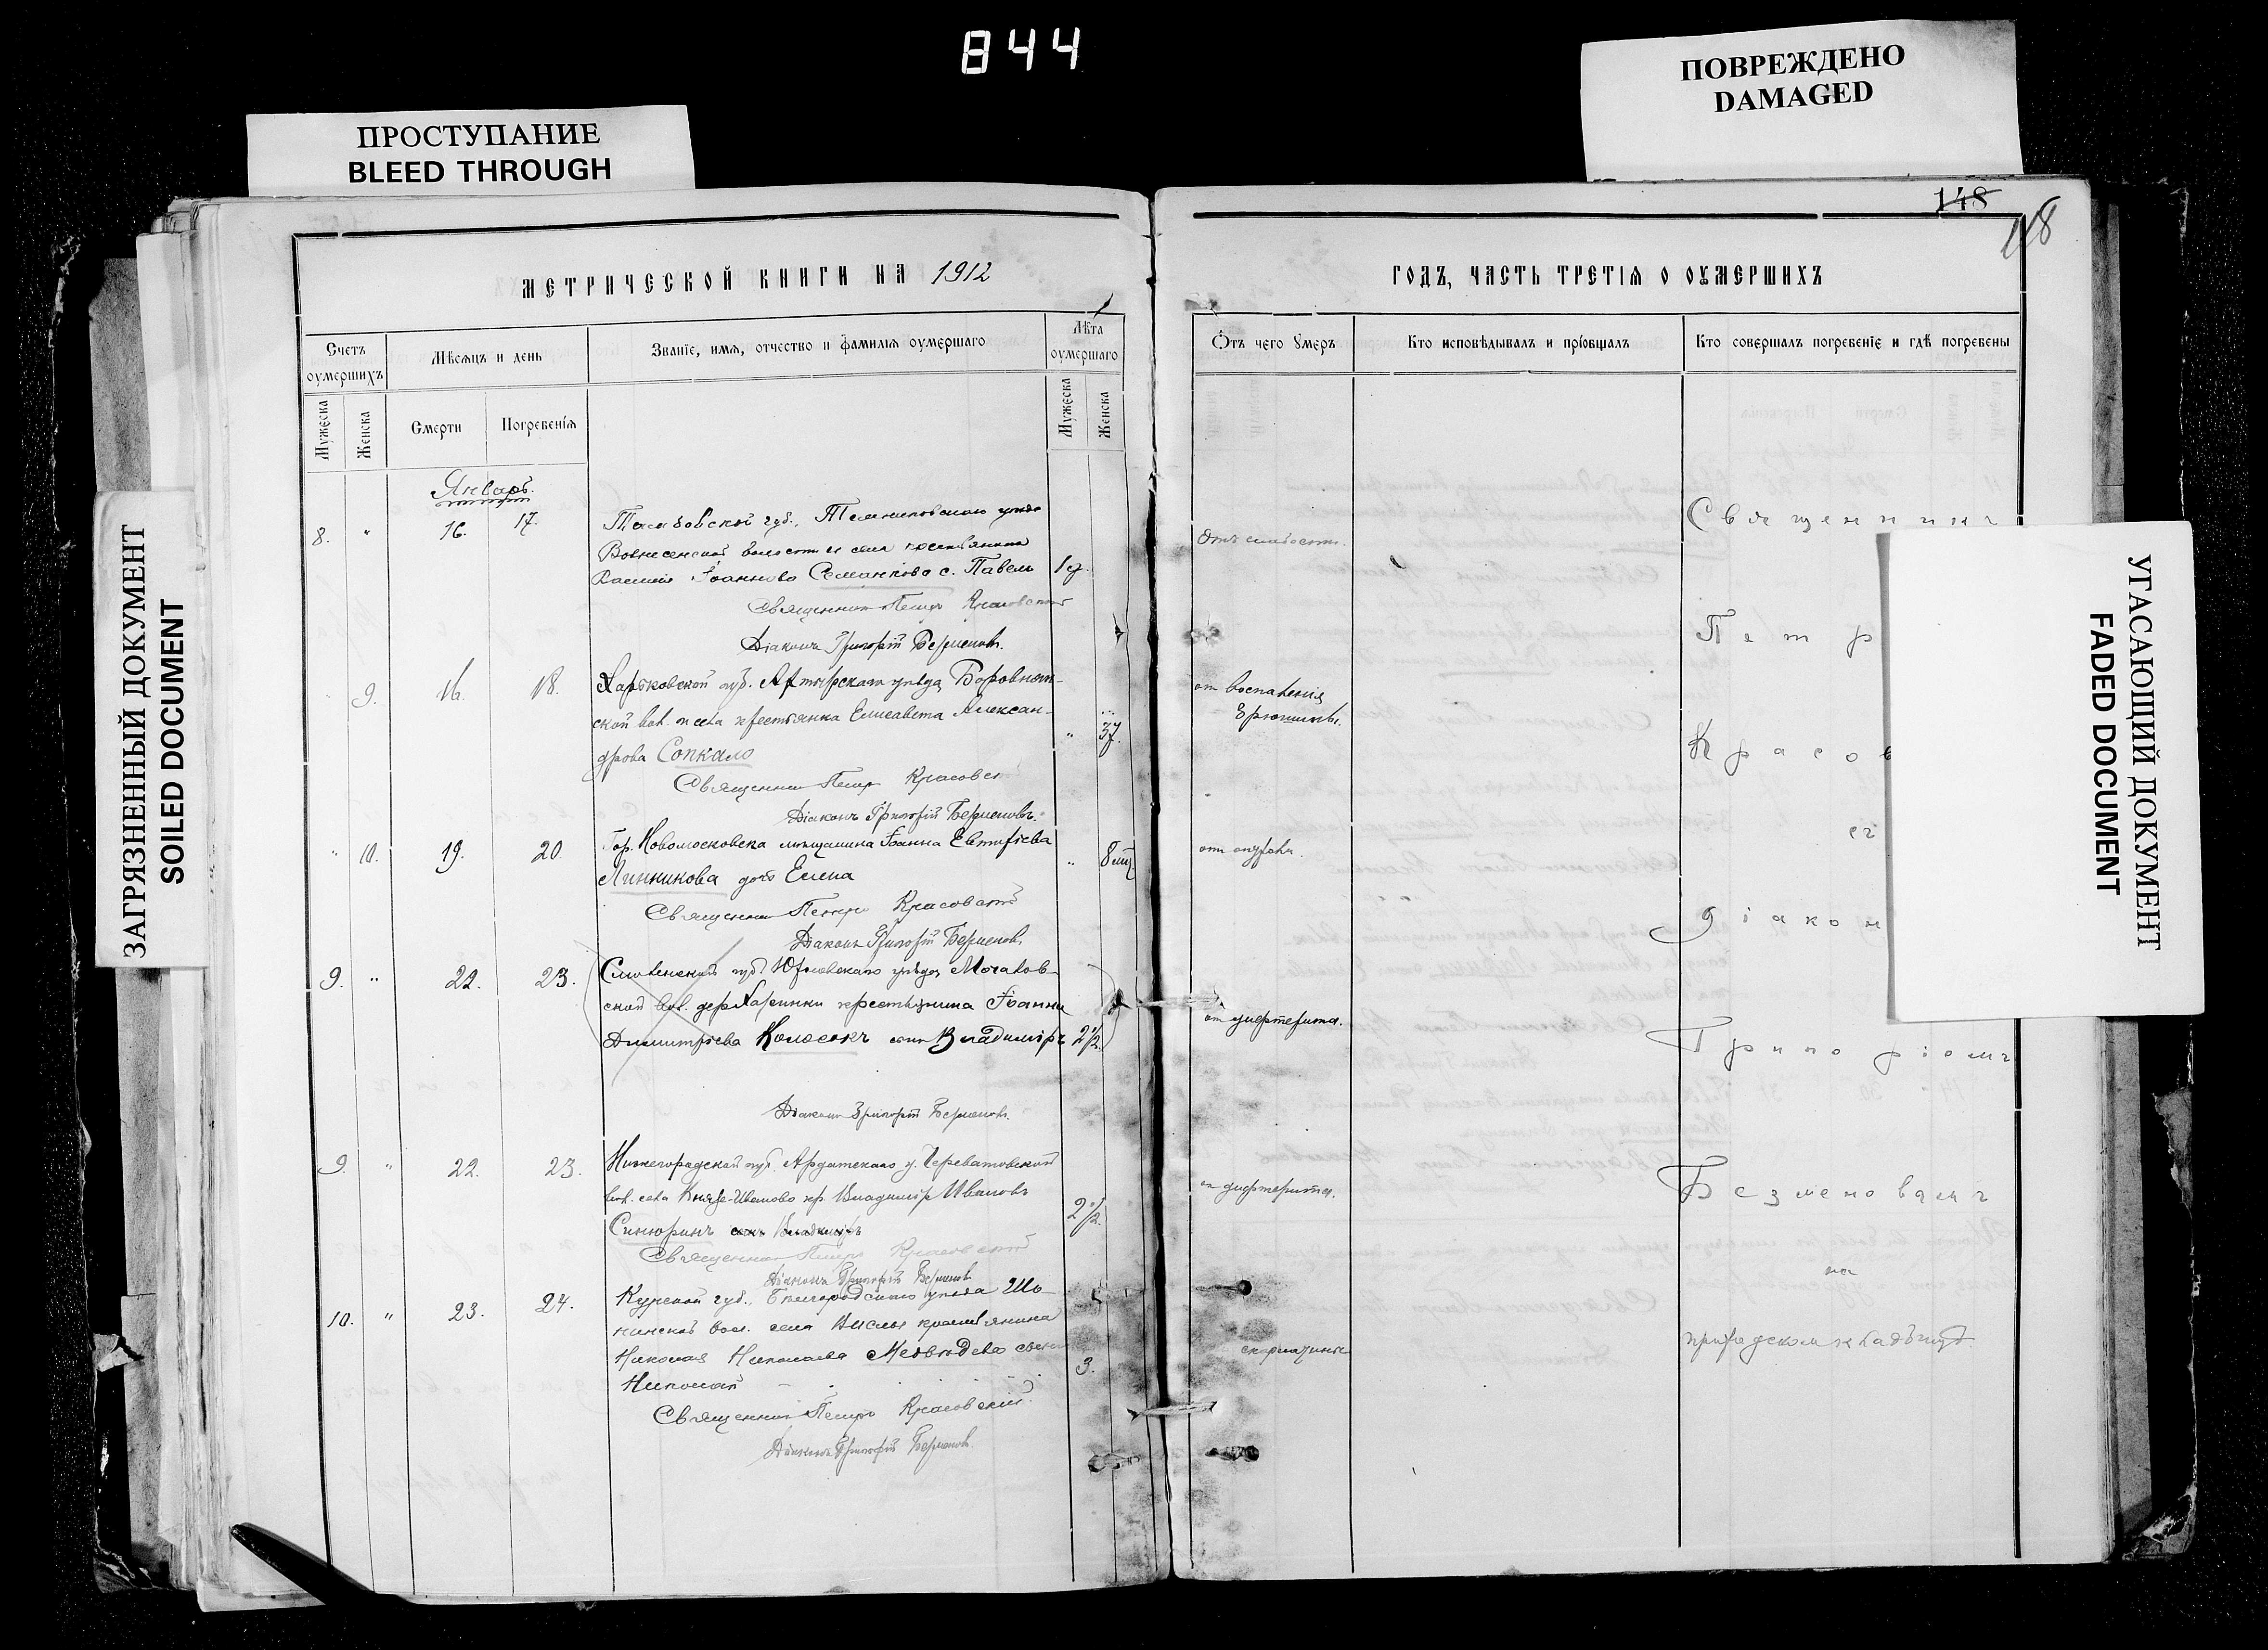 844
ПРОСТУПАНИЕ
BLEED THROUGH
ПОВРЕЖДЕНО
DAMAGED
ЗАГРЯЗНЕННЫЙ ДОКУМЕНТ
SOILED DOCUMENT
УГАСАЮЩИЙ ДОКУМЕНТ
FADED DOCUMENT
148
118
МЕТРИЧЕСКОЙ КНИГИ НА 1912
Счетъ оумершихъ
Мѣсяцъ и день
Званіе, имя, отчество и фамилія оумершаго
Лѣта оумершаго
Мужеска
Женска
Смерти
Погребенія
Мужеска
Женска
Январь.
8. " 16. 17. Тамбовской губ., Темниковскаго уѣзда
Вознесенской волости и села крестьянина
Іоаннова Семанкова с. Павелъ 1 г.
Священникъ Петръ Красовскій
Діаконъ Григорій Безменовъ.
9. 16. 18. Харьковской губ. Ахтырскаго уѣзда Боровнян-
ской вол. и села крестьянка Елисавета Алексан-
дрова Сопкало " 37.
Священникъ Петръ Красовскій
Діаконъ Григорій Безменовъ.
" 10. 19. 20. Гор. Новомосковска мѣщанина Іоанна Евтихіева
Линникова дочь Елена " 8 мц
Священникъ Петръ Красовскій
Діаконъ Григорій Безменовъ.
9. " 22. 23. Смоленской губ. Юхновскаго уѣзда
ской вол. дер. крестьянина Іоанна
Димитріева Колосокъ сынъ Владиміръ 2 1/2.
Діаконъ Григорій Безменовъ.
9. " 22. 23. Нижегородской губ. Ардатскаго у. Череватовской
вол. села Князь-Иваново кр. Владиміръ Ивановъ
Синюринъ сынъ Владиміръ 2 1/2.
Священникъ Петръ Красовскій
Діаконъ Григорій Безменовъ
10. " 23. 24. Курской губ., Бѣлгородскаго уѣзда Ша-
хинской вол. села Вислы крестьянина
Николая Николаева Медвѣдева сынъ 3.
Николай
Священникъ Петръ Красовскій.
Діаконъ Григорій Безменовъ
ГОДЪ, ЧАСТЬ ТРЕТІЯ О ОУМЕРШИХЪ
Отъ чего умеръ
Кто исповѣдывалъ и пріобщалъ
Кто совершалъ погребеніе и гдѣ погребены
Отъ слабости.
от воспаленія
брюшины.
от дифтерита.
от дифтерита.
скарлатины
Священникъ
Петр
Красов
съ
діакон
Григоріемъ
Безменовымъ
на
приходскомъ кладбищѣ